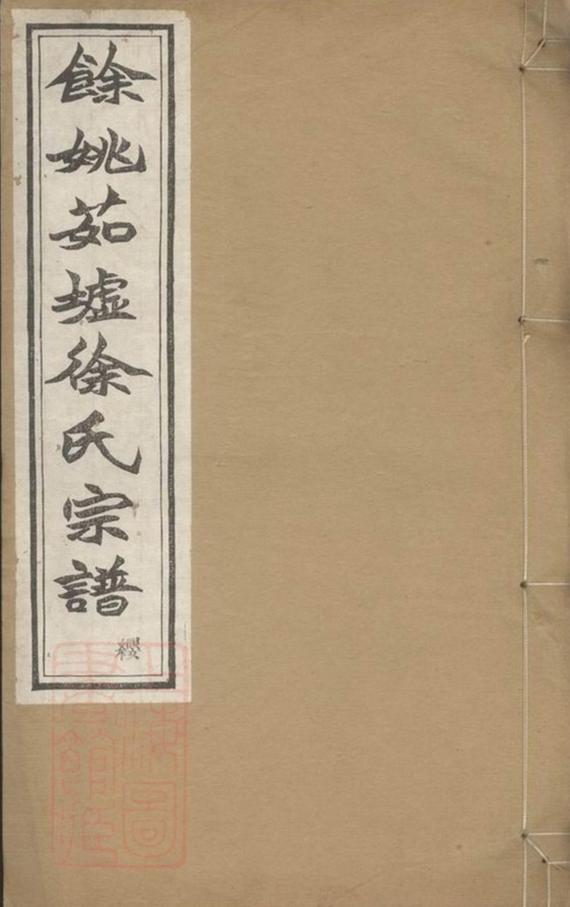 餘姚茹墟徐氏宗譜
纓